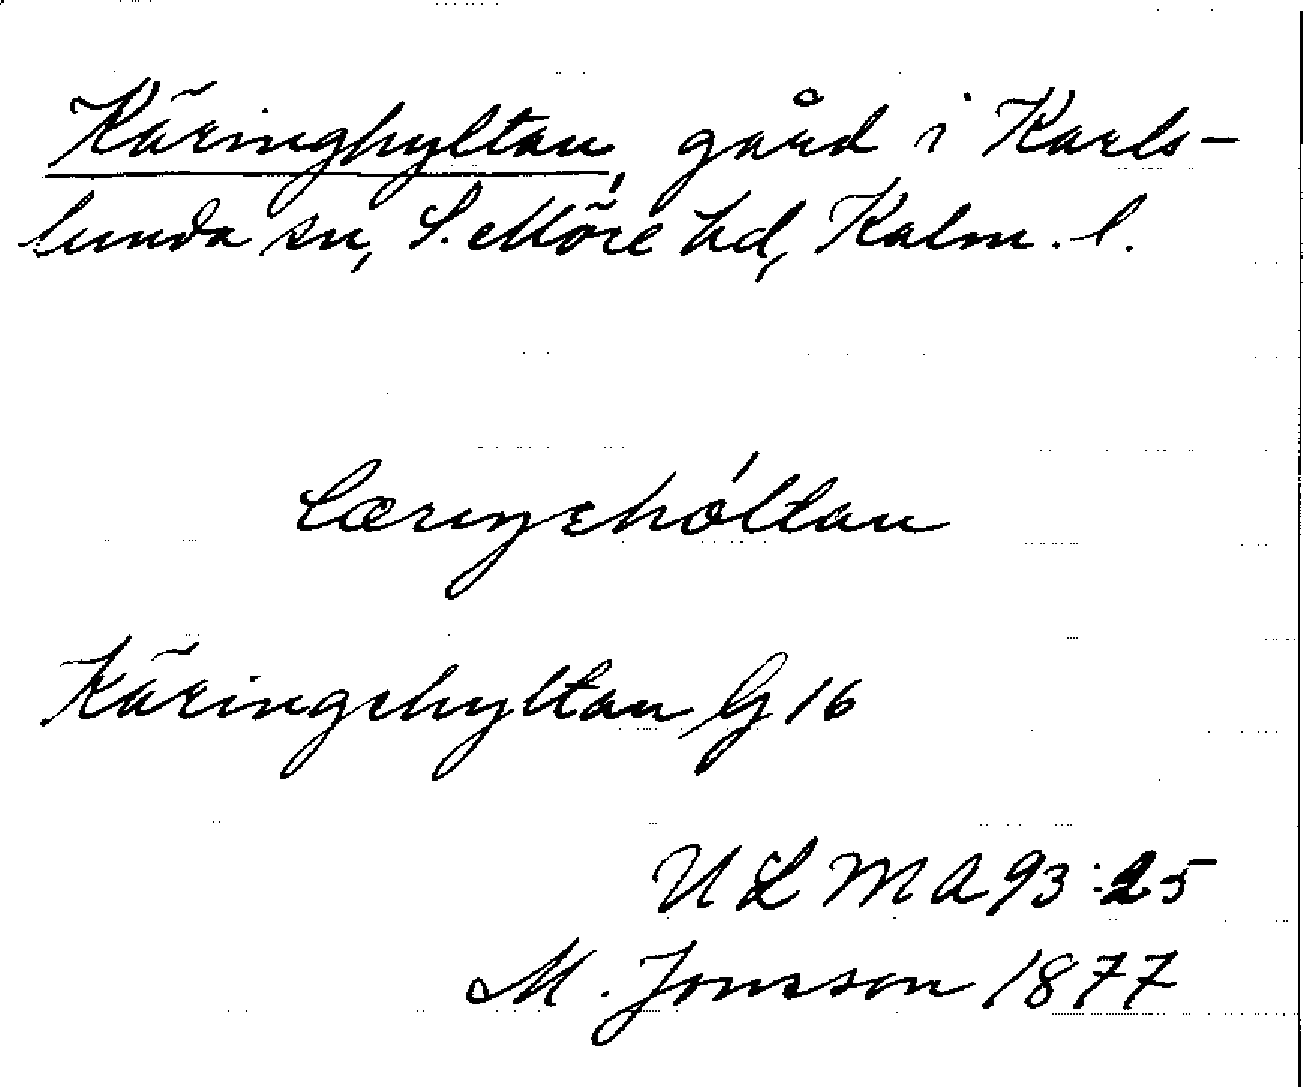 Käringhyltan, gård i Karls-
lunda sn, S. Möre hd, Kalm. l.
Cæryehóltan
Käringehyltan G 16
ULMA 93:25
M. Jonsson 1877